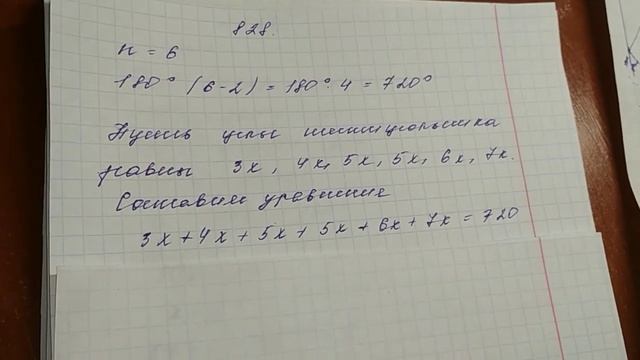 828.
n = 6
180° (6-2) = 180° · 4 = 720°
Пусть углы шестиугольника
равны 3x, 4x, 5x, 5x, 6x, 7x.
Составим уравнение
3x + 4x + 5x + 5x + 6x + 7x = 720